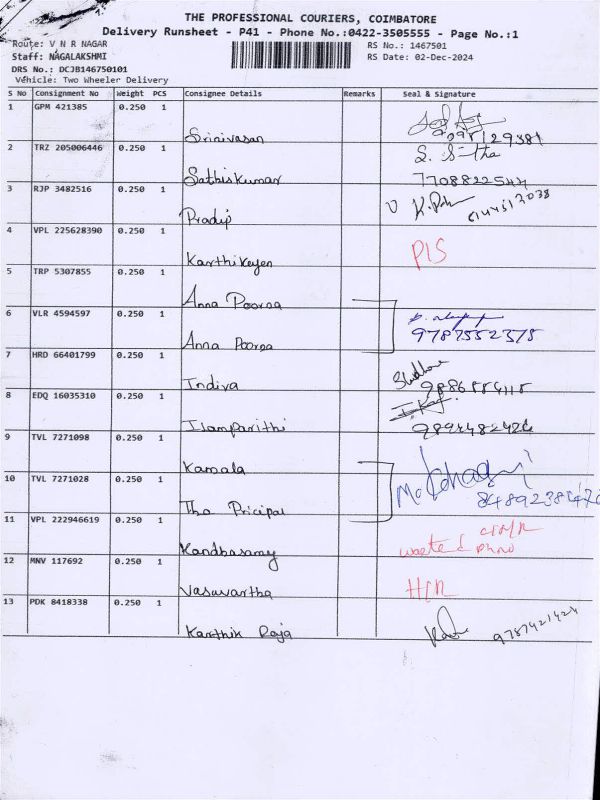 THE PROFESSIONAL COURIERS, COIMBATORE
Delivery Runsheet - P41 - Phone No.:0422-3505555 - Page No.:1
Route: V N R NAGAR
RS No.: 1467501
Staff: NAGALAKSHMI
RS Date: 02-Dec-2024
DRS No.: DCJB146750101
Vehicle: Two Wheeler Delivery
S No Consignment No Weight PCS Consignee Details Remarks Seal & Signature
1 GPM 421385 0.250 1
Srinivasan
2 TRZ 205006446 0.250 1
S. Sitha
Sathiskumar
3 RJP 3482516 0.250 1
Pradip
4 VPL 225628390 0.250 1
Karthikeyen
5 TRP 5307855 0.250 1
Anna Poorna
6 VLR 4594597 0.250 1
9787552375
Anna Poorna
7 HRD 66401799 0.250 1
Indira
8 EDQ 16035310 0.250 1
Ilamparithi
9 TVL 7271098 0.250 1
Kamala
10 TVL 7271028 0.250 1
The Pricipal
11 VPL 222946619 0.250 1
Kandhasamy
12 MNV 117692 0.250 1
Vasuvartha
13 PDK 8418338 0.250 1
9787421424
Karthik Raja